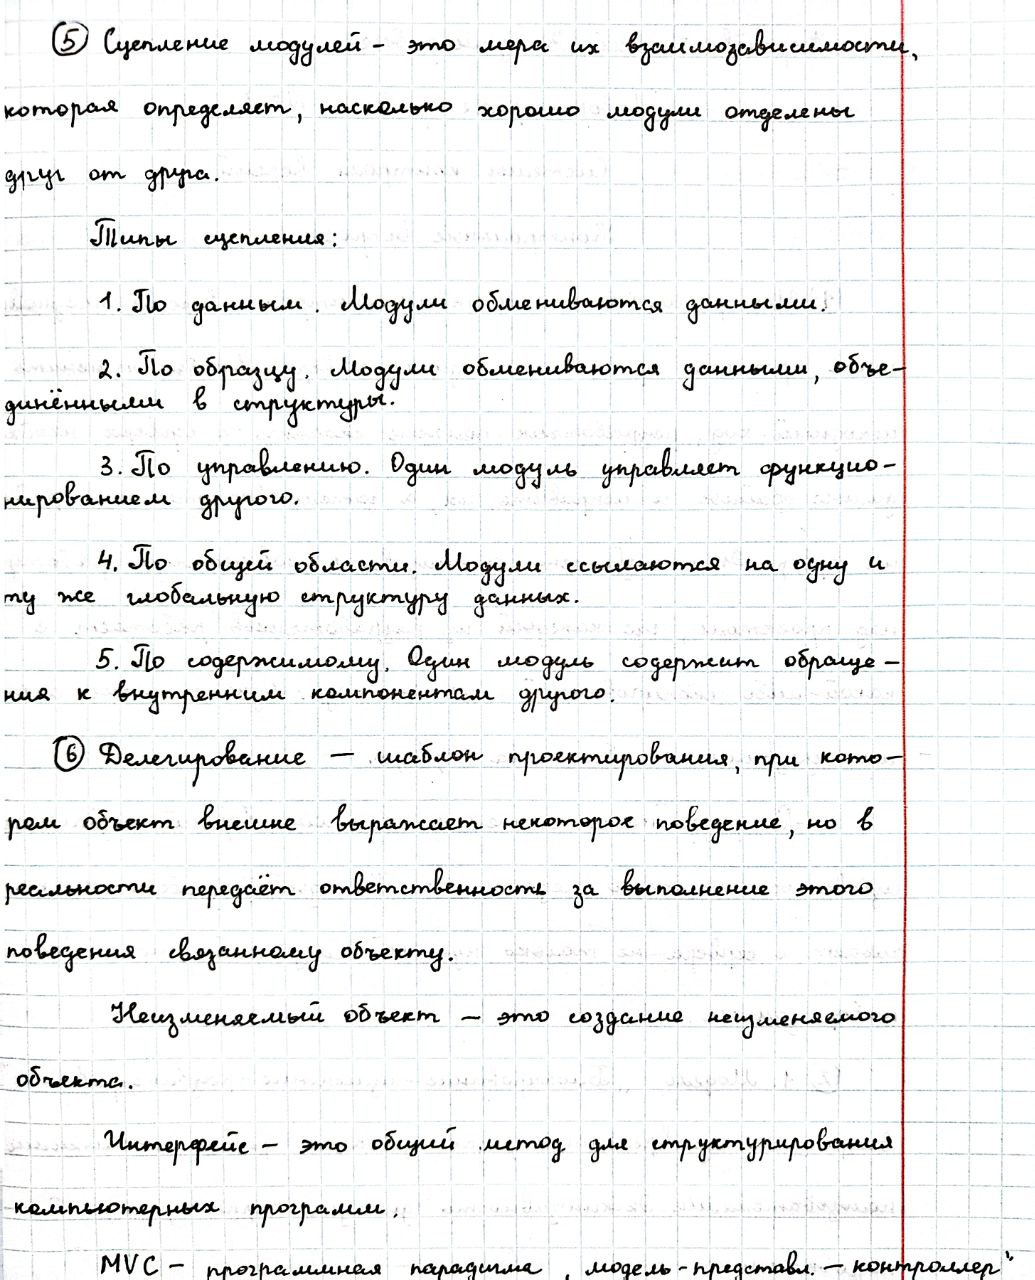 ⑤ Сцепление модулей – это мера их взаимозависимости,
которая определяет, насколько хорошо модули отделены
друг от друга.
Типы сцепления:
1. По данным. Модули обмениваются данными.
2. По образцу. Модули обмениваются данными, объе-
динёнными в структуры.
3. По управлению. Один модуль управляет функцио-
нированием другого.
4. По общей области. Модули ссылаются на одну и
ту же глобальную структуру данных.
5. По содержимому. Один модуль содержит обраще-
ния к внутренним компонентам другого.
⑥ Делегирование – шаблон проектирования, при кото-
ром объект внешне выражает некоторое поведение, но в
реальности передаёт ответственность за выполнение этого
поведения связанному объекту.
Неизменяемый объект – это создание неизменяемого
объекта.
Интерфейс – это общий метод для структурирования
компьютерных программ.
MVC – программная парадигма „модель-представл. – контроллер"